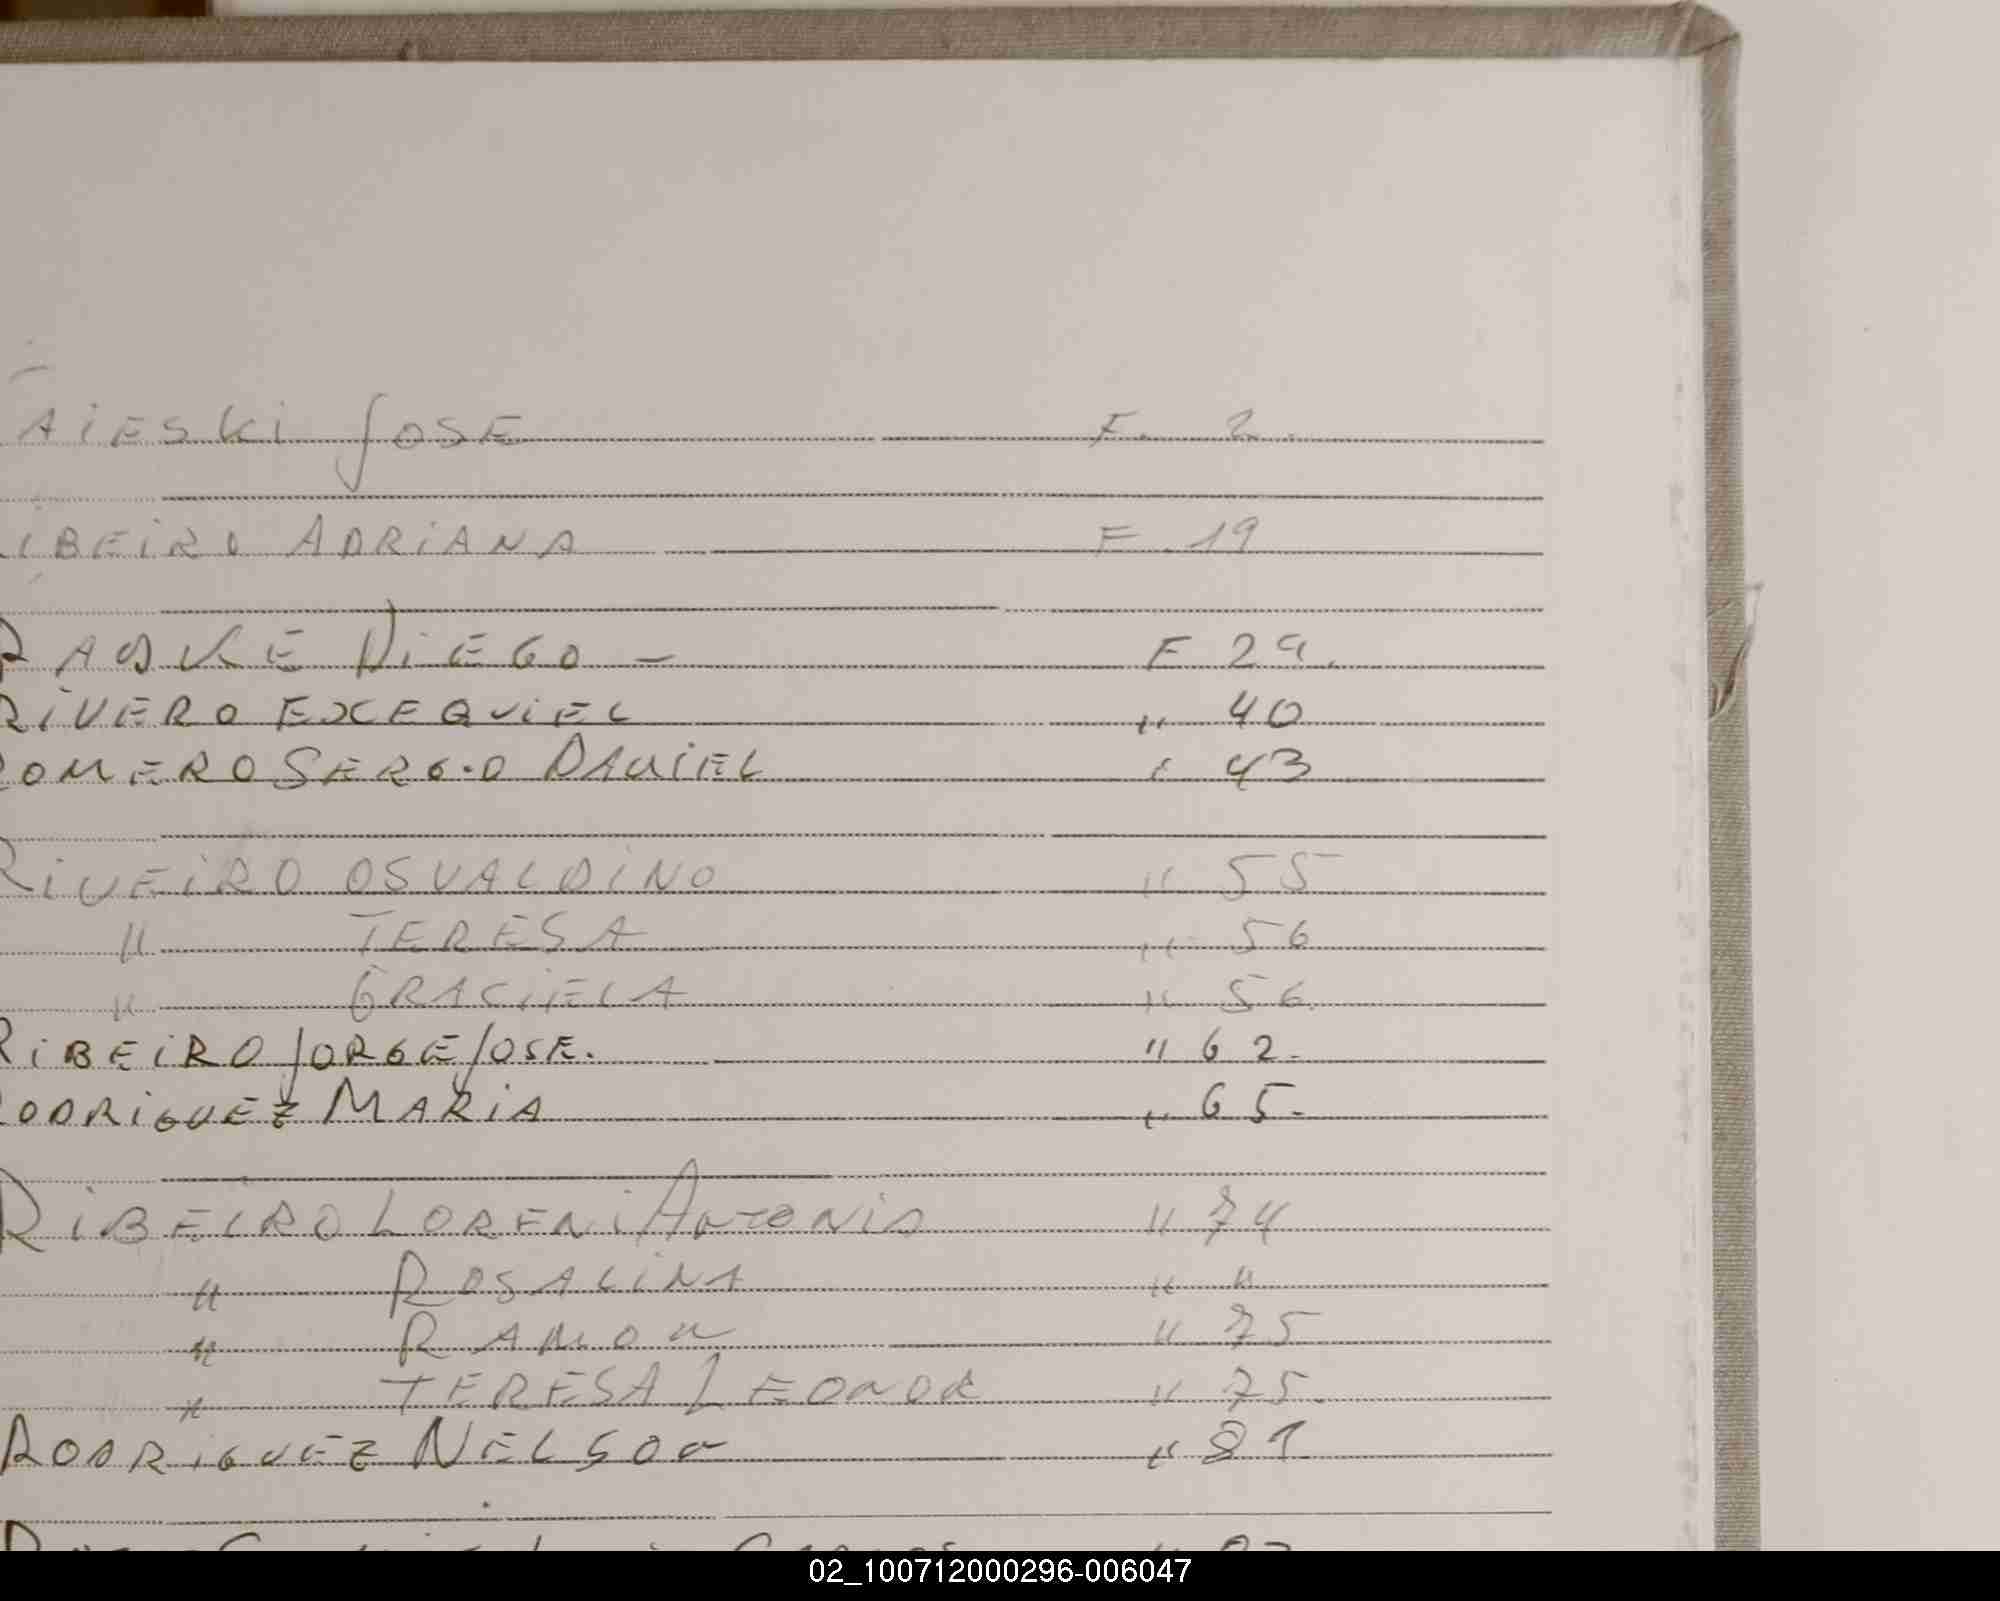 AIESKI JOSE F. 2.
IBEIRO ADRIANA F. 19
RADKE DIEGO - F 29.
RIVERO EXCEQUIEL " 40
ROMERO SERGIO DANIEL " 43
RIVEIRO OSVALDINO " 55
" TERESA " 56
" GRACIELA " 56.
RIBEIRO JORGE JOSE. " 62.
RODRIGUEZ MARIA " 65.
RIBEIRO LORENI ANTONIO " 74
" ROSALINA " "
" RAMON " 75
" TERESA LEONOR " 75.
RODRIGUEZ NELSON " 81
02_100712000296-006047